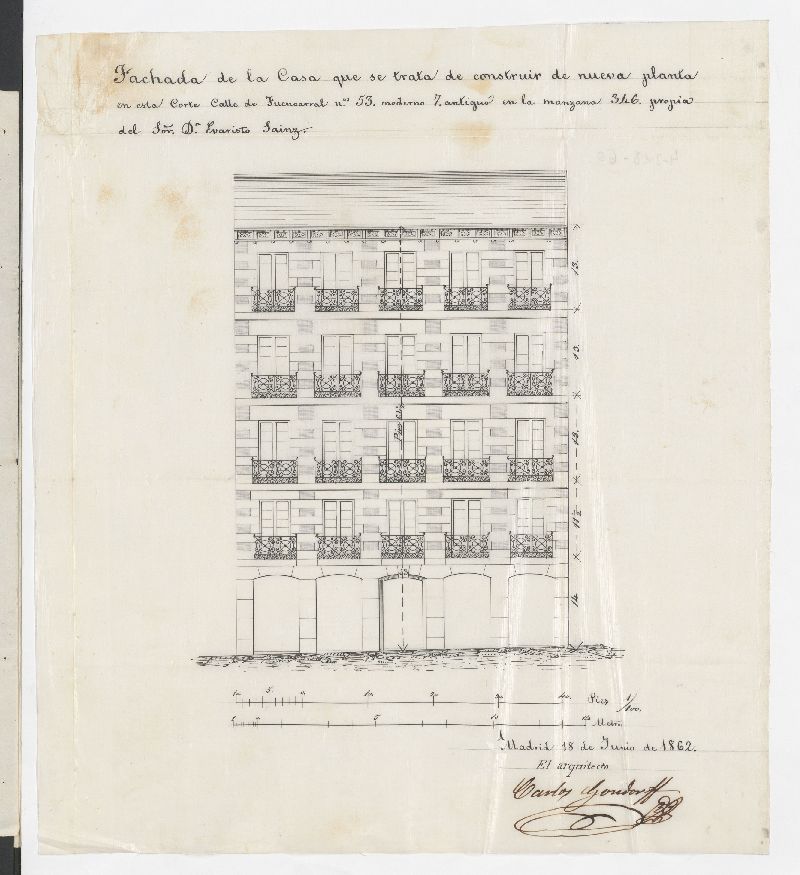 Fachada de la Casa que se trata de construir de nueva planta
en esta Corte Calle de Fuencarral nº 53. moderno 7. antiguo en la manzana 346. propia
del Sor. Dn. Evaristo Sainz.
13.
13.
12.
11 ½
14.
10 5 0 10 20 30 40 Pies 1/100.
Metr.
Madrid 18 de Junio de 1862.
El arquitecto
Carlos Gondorff